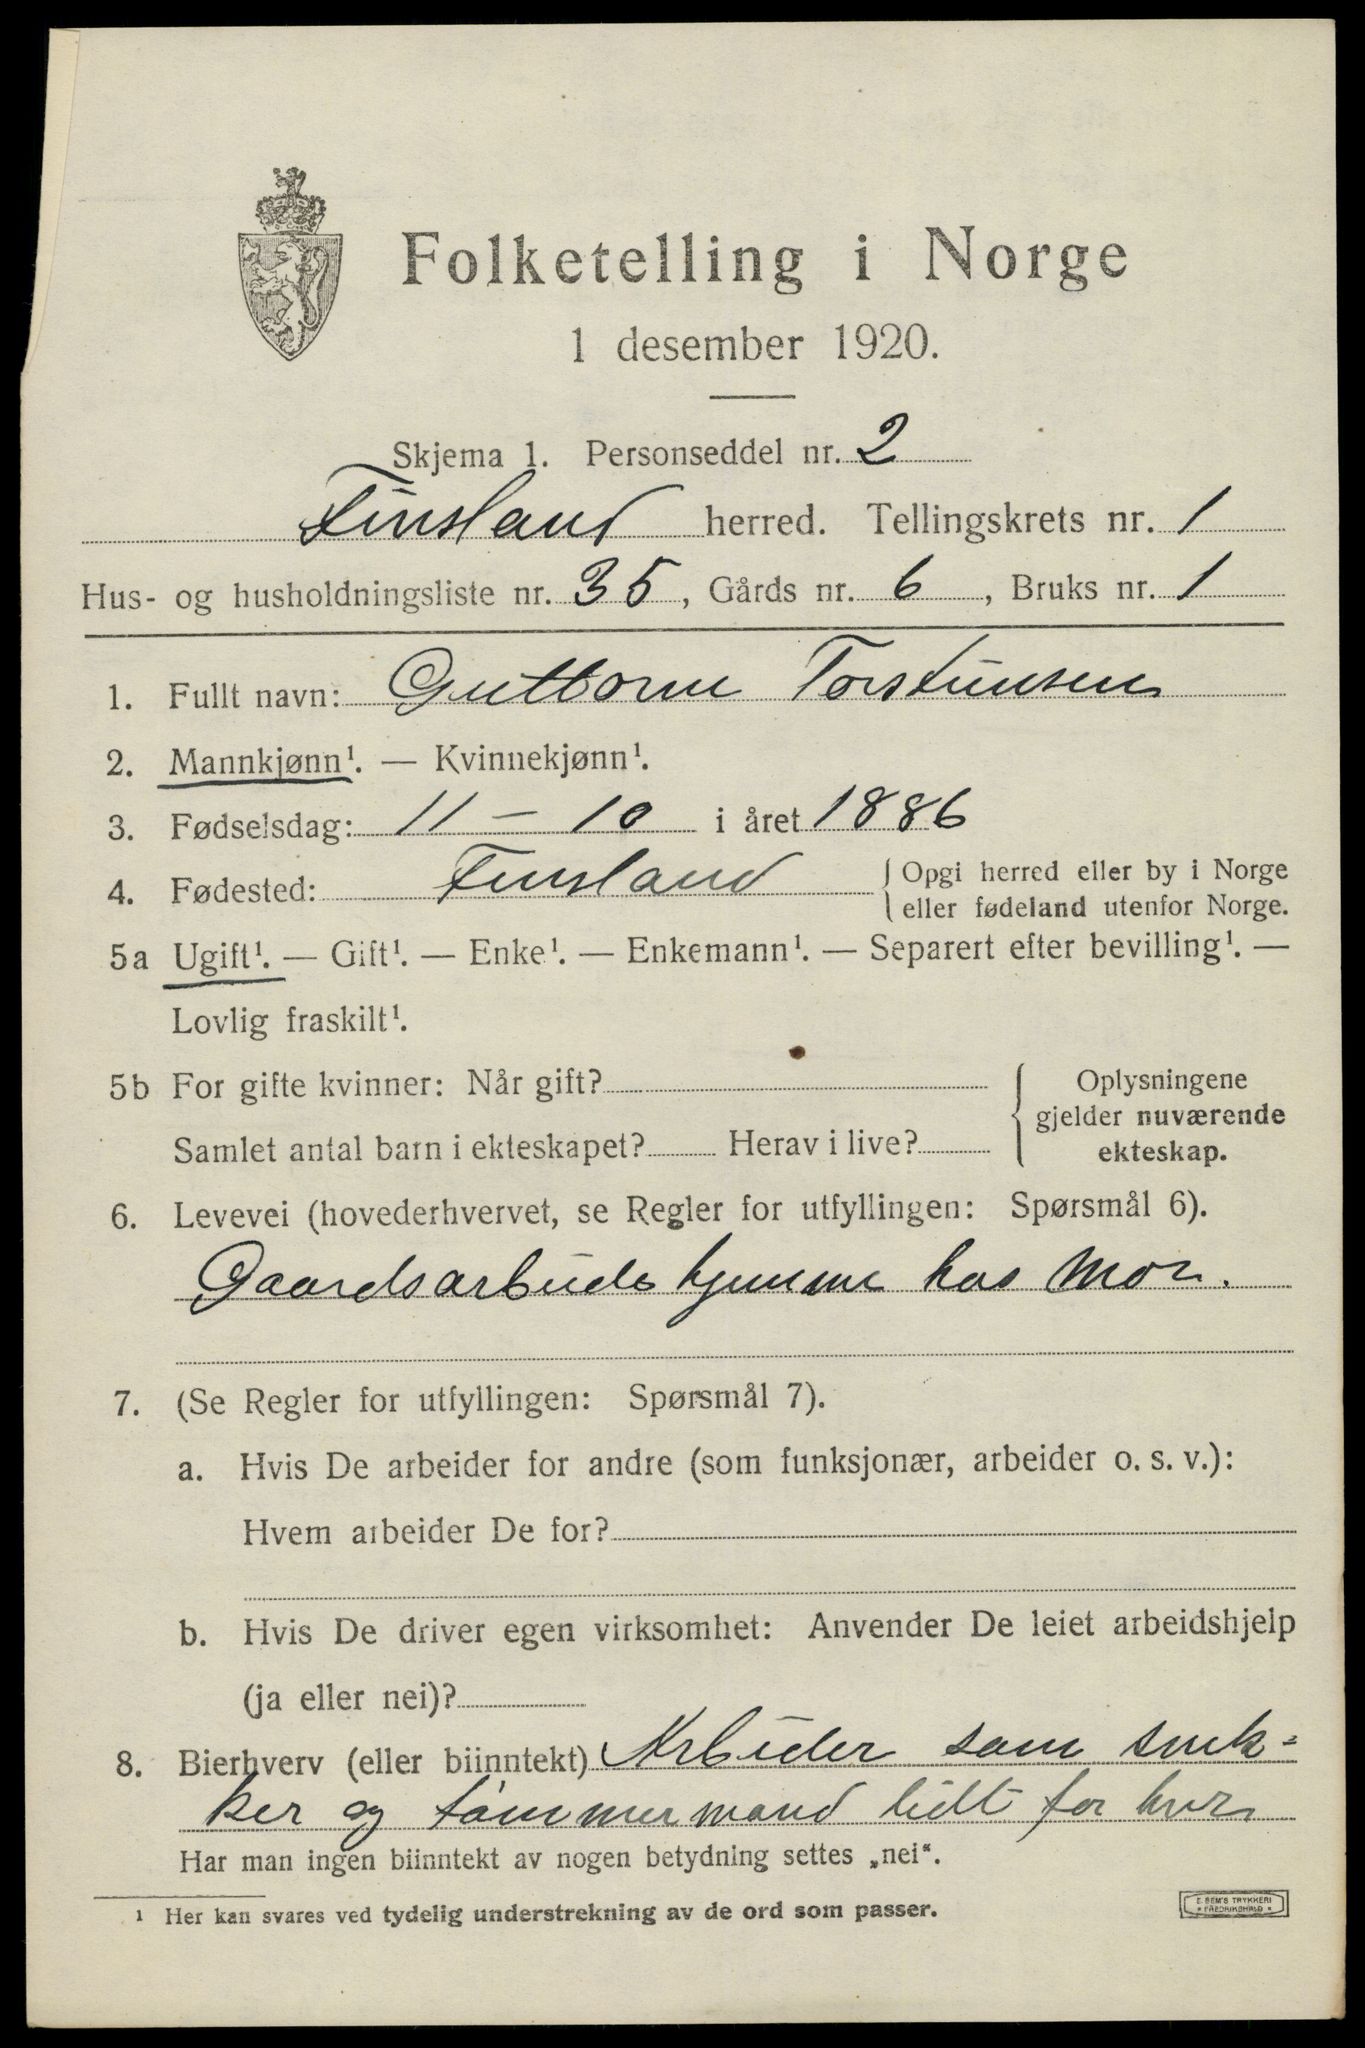 Folketelling i Norge
1 desember 1920.
Skjema 1. Personseddel nr. 2
Finsland herred. Tellingskrets nr. 1
Hus- og husholdningsliste nr. 35, Gårds nr. 6, Bruks nr. 1
1. Fullt navn: Guttorm Torsteinsen
2. Mannkjønn¹. — Kvinnekjønn¹.
3. Fødselsdag: 11 – 10 i året 1886
4. Fødested: Finsland { Opgi herred eller by i Norge
eller fødeland utenfor Norge.
5a Ugift¹. — Gift¹. — Enke¹. — Enkemann¹. — Separert efter bevilling¹. —
Lovlig fraskilt¹.
5b For gifte kvinner: Når gift? { Oplysningene
gjelder nuværende
Samlet antal barn i ekteskapet? Herav i live?
ekteskap.
6. Levevei (hovederhvervet, se Regler for utfyllingen: Spørsmål 6).
Gaardsarbeide hjemme hos Mor.
7. (Se Regler for utfyllingen: Spørsmål 7).
a. Hvis De arbeider for andre (som funksjonær, arbeider o. s. v.):
Hvem arbeider De for?
b. Hvis De driver egen virksomhet: Anvender De leiet arbeidshjelp
(ja eller nei)?
8. Bierhverv (eller biinntekt) Arbeider som snik-
ker og tømmermand lidt for hver
Har man ingen biinntekt av nogen betydning settes „nei“.
¹ Her kan svares ved tydelig understrekning av de ord som passer.
E. SEM'S TRYKKERI
* FREDRIKSHALD *